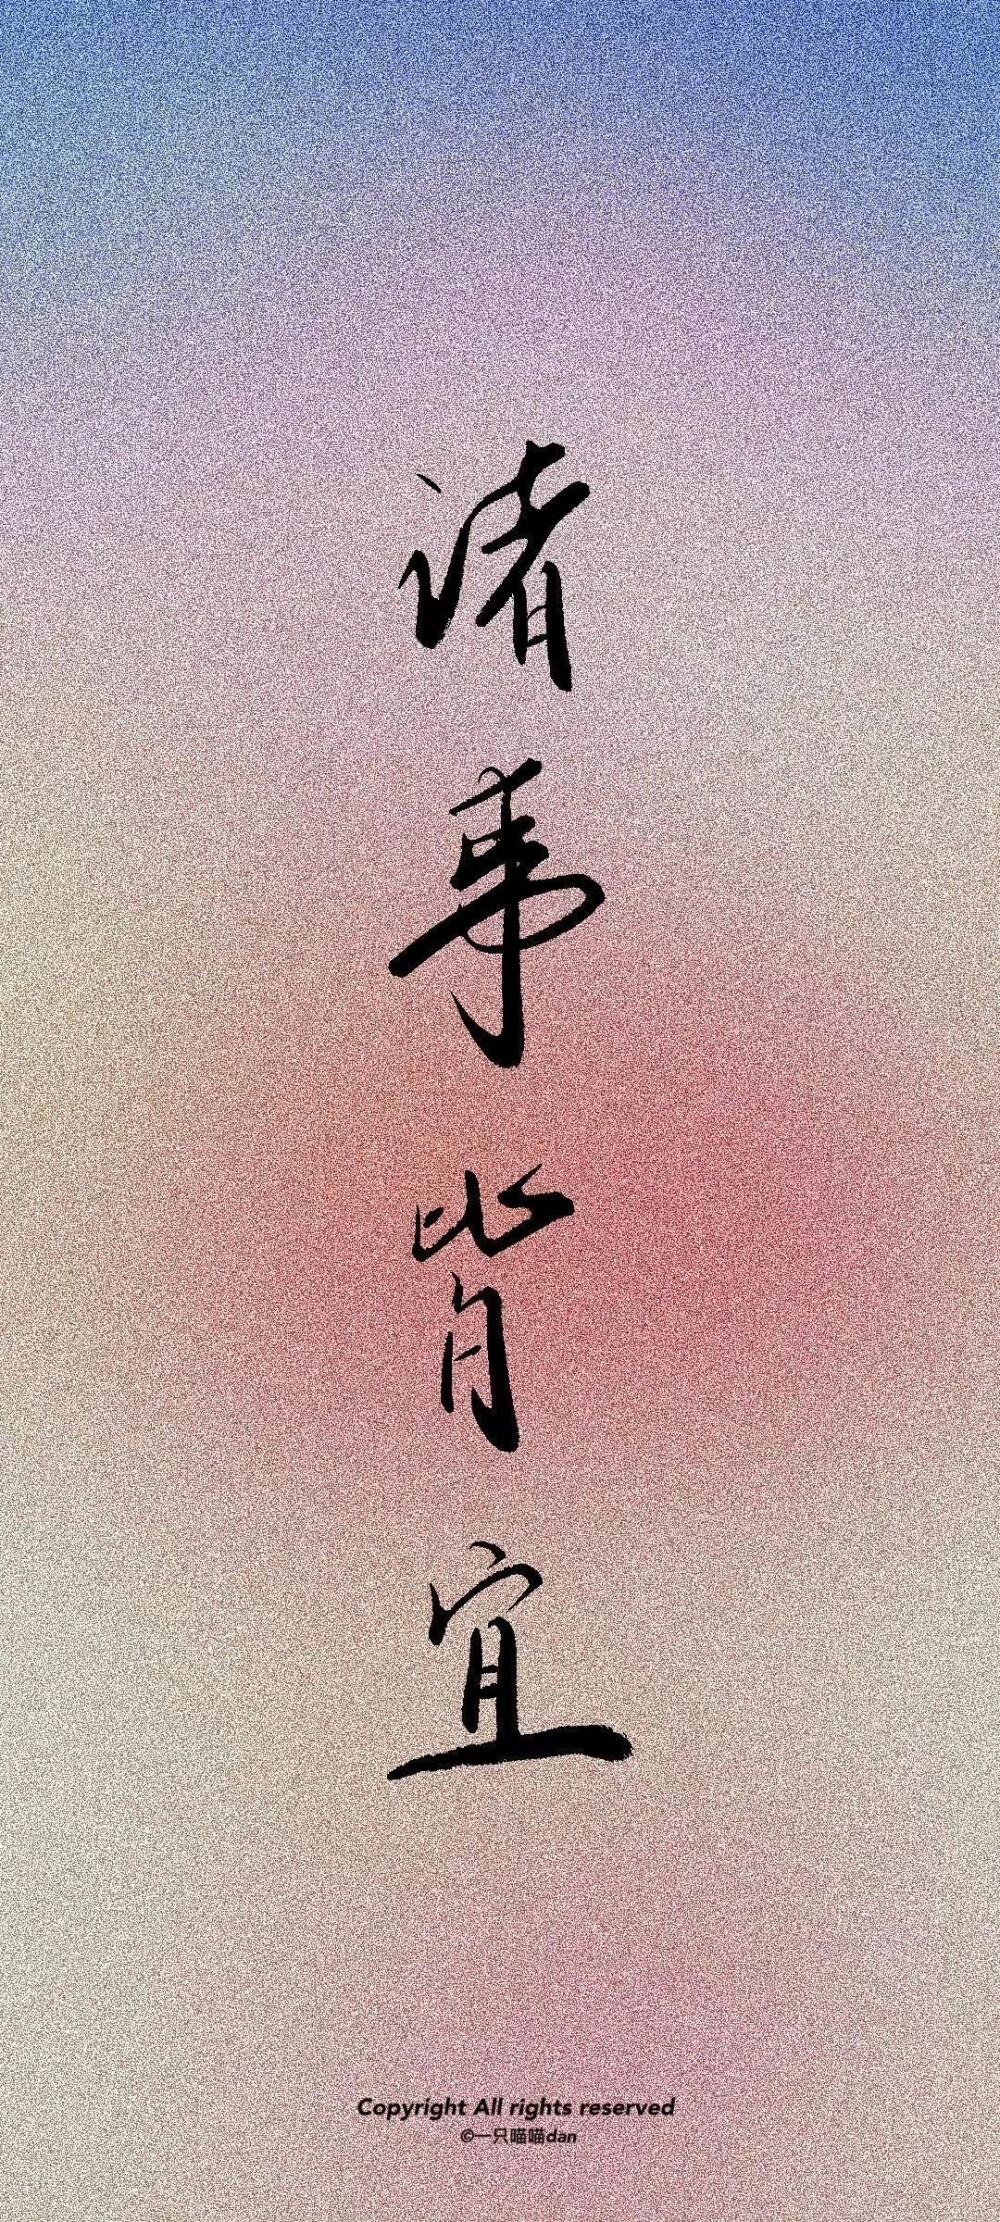 诸事皆宜
Copyright All rights reserved
©一只喵喵dan